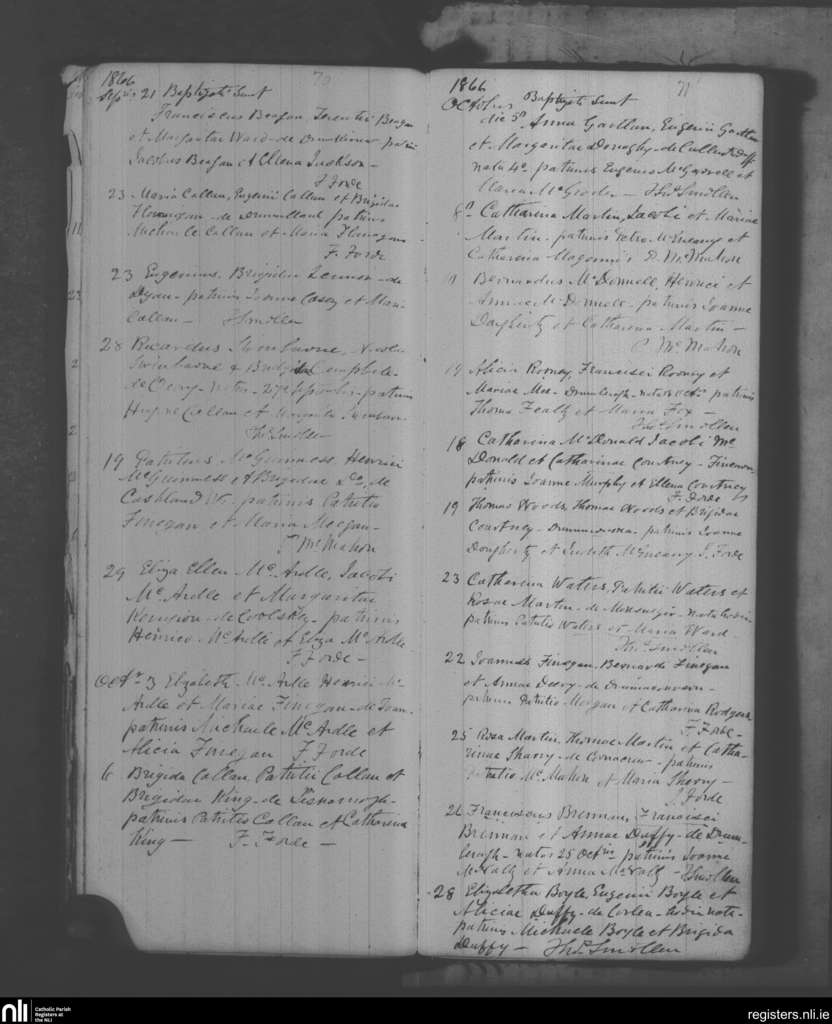 1866 70
Sepris 21 Baptizati Sunt
Franciscus Beagan, Terentii Beagan
et Margaritae Ward - de patrinis
Jacobus Beagan et Ellena Jackson -
F Forde
23 Maria Callan, Eugenii Callan et Brigidae
Flanagan - de Drummilland patrinis
Michaele Callan et Maria Flanagan
F. Forde
23 Eugenius, Brigidae Lennon - de
Dyan - patrinis Joanne Casey et Maria
Callan - Smollen
28 Ricardus Swinburne,
Swinburne & Brigida Campbele -
de natus - 27a Septembris - patrinis
Hugone Callan et
Thos Smollen
19 Patritius McGuinness, Henrici
McGuinness et Brigidae Do, de
Cashland patrinis Patritio
Finegan et Maria Meegan -
McMahon
29 Eliza Ellen McArdle, Jacobi
McArdle et Margaritae
de Coolskey - patrinis
Henrico McArdle et Eliza McArdle
F Forde -
Octr 3 Elizabeth McArdle Henrici Mc
Ardle et Mariae Finegan - de
patrinis Michaele McArdle et
Alicia Finegan F. Forde
6 Brigida Callan, Patritii Callan et
Brigidae King - de Lisnamogh -
patrinis Patritio Callan et Catherina
King - F. Forde -
1866 71
October Baptizati Sunt
die 5a Anna Gartlan, Eugenii Gartlan
et Margaritae Donaghy - de
nata 4a - patrinis Eugenio McGarrell et
Maria McGrode - Thos Smollen
8a Catharina Martin, Jacobi et Mariae
Martin - patrinis Petro McEneany et
Catherina Magennis P. McMahon
11 Bernardus McDonnell, Henrici et
Annae McDonnell - patrinis Joanne
Dougherty et Catharina Martin -
McMahon
14 Alicia Rooney, Francisci Rooney et
Mariae - Drumleagh - nata patrinis
Thoma Fealty et Maria Fox -
Thos Smollen
18 Catharina McDonald Jacobi Mc
Donald et Catharinae Courtney -
patrinis Joanne Murphy et Ellena Courtney
F. Forde
19 Thomas Woods, Thomae Woods et Brigidae
Courtney - patrinis Joanne
Dougherty et Judith McEneany F. Forde
23 Catherina Waters, Patritii Waters et
Rosae Martin - de - nata hodie
patrinis Patritio Waters et Maria Ward -
Thos Smollen
22 Joannes Finegan, Bernardi Finegan
et Annae Deery - de
patrinis Patritio Morgan et Catharina Rodgers
F. Forde -
25 Rosa Martin, Thomae Martin et Catha-
rinae Sharry - de Cornacrew - patrinis
Patritio McMahon et Maria Sherry -
F. Forde
26 Franciscus Brennan, Francisci
Brennan et Annae Duffy - de Drum-
leagh - natus 25 Octris patrinis Joanne
McNally et Anna McNally - Smollen
28 Elizabetha Boyle, Eugenii Boyle et
Aliciae Duffy - de Corlea - hodie nata -
patrinis Michaele Boyle et Brigida
Duffy - Thos Smollen
nli Catholic Parish
Registers at
the NLI
registers.nli.ie